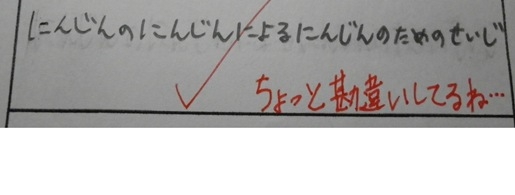 にんじんのにんじんによるにんじんのためのせいじ
ちょっと勘違いしてるね…